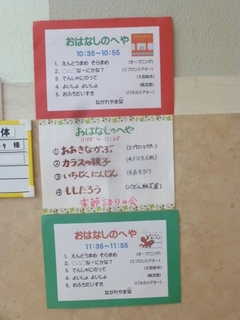 おはなしのへや
10:35～10:55
1. えんどうまめ そらまめ (オープニング)
2. ○○○なーにかな? (エプロンシアター)
3. でんしゃにのって (大型絵本)
4. よいしょ よいしょ (紙芝居)
5. おふろだいすき (パネルシアター)
ながれやま栞
おはなしのへや
① おおきなかぶ (エプロンシアター)
② カラスの親子
③ いちじくにんじん
④ ししたろう
体
様
おはなしのへや
11:35～11:55
1. えんどうまめ そらまめ (オープニング)
2. ○○○なーにかな? (エプロンシアター)
3. でんしゃにのって (大型絵本)
4. よいしょ よいしょ (紙芝居)
5. おふろだいすき (パネルシアター)
ながれやま栞